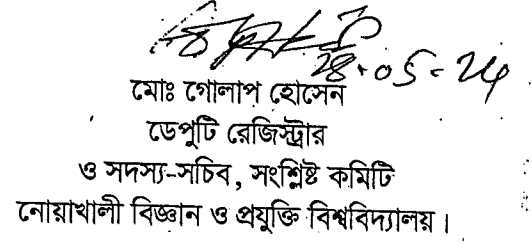 28-05-24
মোঃ গোলাপ হোসেন
ডেপুটি রেজিস্ট্রার
ও সদস্য-সচিব, সংশ্লিষ্ট কমিটি
নোয়াখালী বিজ্ঞান ও প্রযুক্তি বিশ্ববিদ্যালয়।